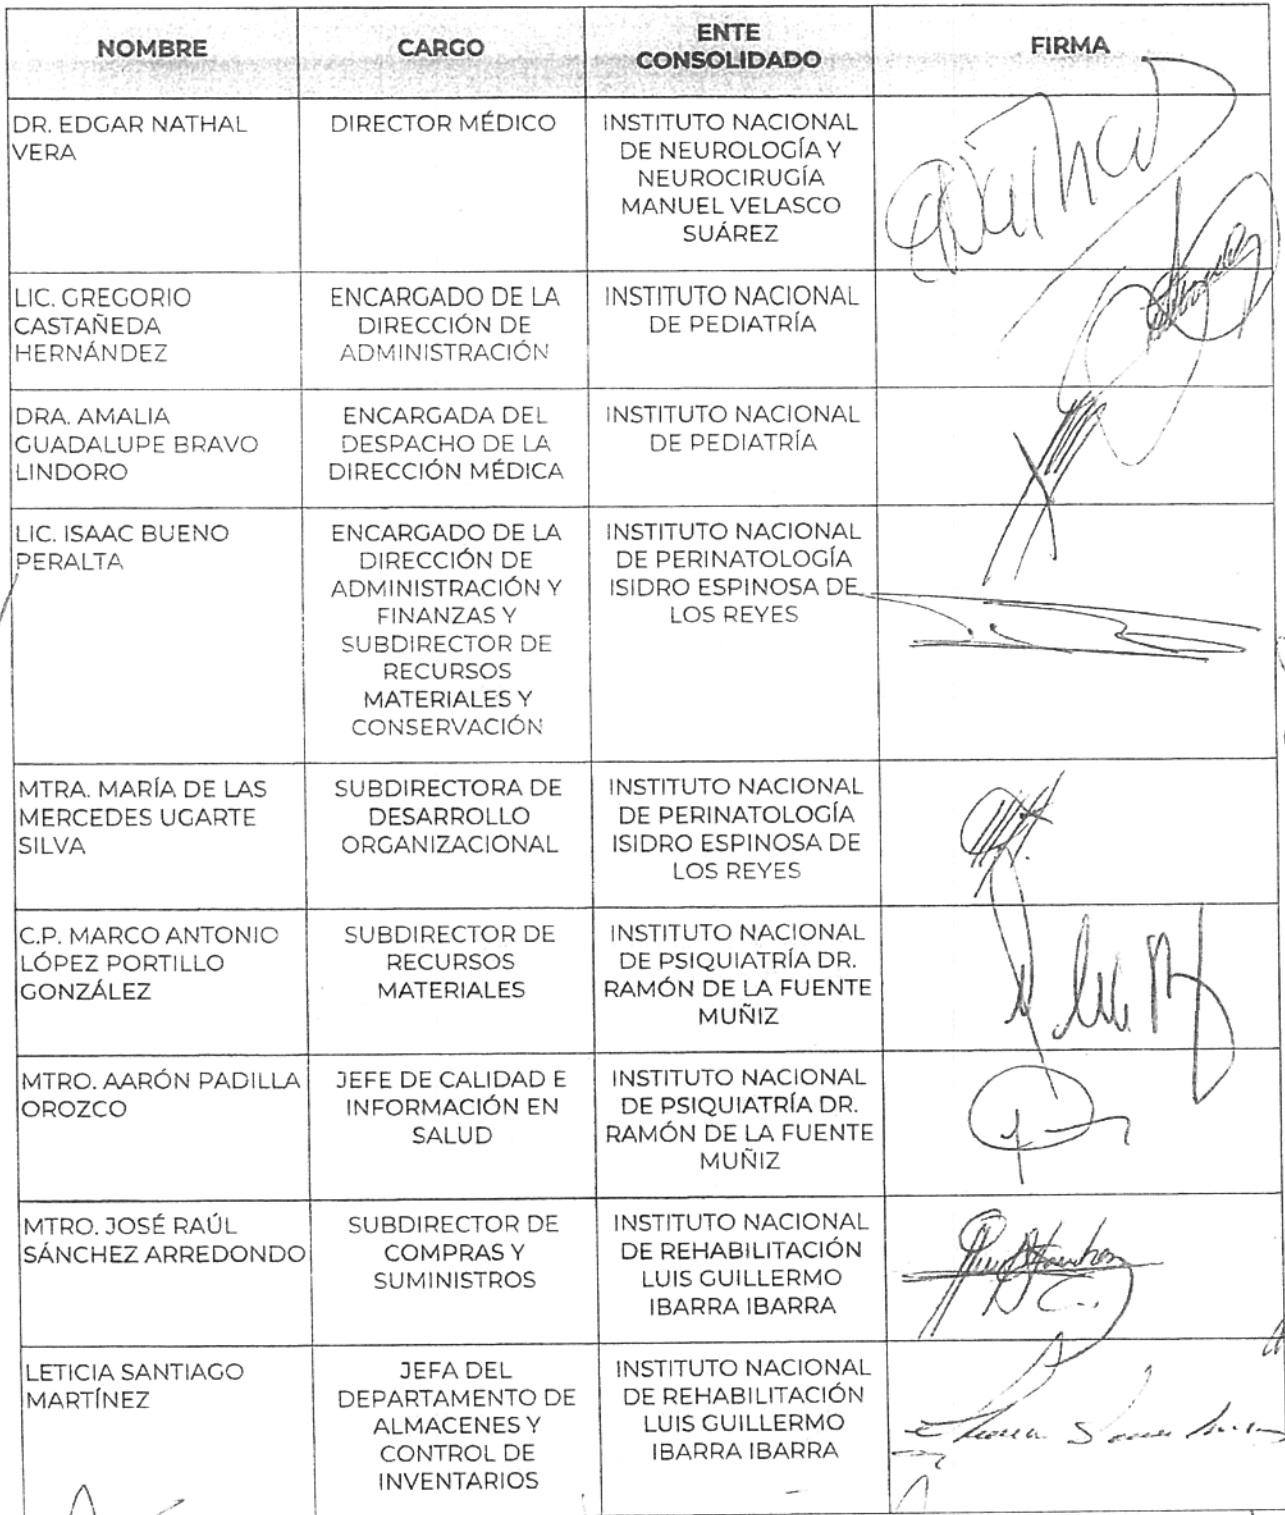 NOMBRE
CARGO
ENTE
CONSOLIDADO
FIRMA
DR. EDGAR NATHAL
VERA
DIRECTOR MÉDICO
INSTITUTO NACIONAL
DE NEUROLOGÍA Y
NEUROCIRUGÍA
MANUEL VELASCO
SUÁREZ
LIC. GREGORIO
CASTAÑEDA
HERNÁNDEZ
ENCARGADO DE LA
DIRECCIÓN DE
ADMINISTRACIÓN
INSTITUTO NACIONAL
DE PEDIATRÍA
DRA. AMALIA
GUADALUPE BRAVO
LINDORO
ENCARGADA DEL
DESPACHO DE LA
DIRECCIÓN MÉDICA
INSTITUTO NACIONAL
DE PEDIATRÍA
LIC. ISAAC BUENO
PERALTA
ENCARGADO DE LA
DIRECCIÓN DE
ADMINISTRACIÓN Y
FINANZAS Y
SUBDIRECTOR DE
RECURSOS
MATERIALES Y
CONSERVACIÓN
INSTITUTO NACIONAL
DE PERINATOLOGÍA
ISIDRO ESPINOSA DE
LOS REYES
MTRA. MARÍA DE LAS
MERCEDES UGARTE
SILVA
SUBDIRECTORA DE
DESARROLLO
ORGANIZACIONAL
INSTITUTO NACIONAL
DE PERINATOLOGÍA
ISIDRO ESPINOSA DE
LOS REYES
C.P. MARCO ANTONIO
LÓPEZ PORTILLO
GONZÁLEZ
SUBDIRECTOR DE
RECURSOS
MATERIALES
INSTITUTO NACIONAL
DE PSIQUIATRÍA DR.
RAMÓN DE LA FUENTE
MUÑIZ
MTRO. AARÓN PADILLA
OROZCO
JEFE DE CALIDAD E
INFORMACIÓN EN
SALUD
INSTITUTO NACIONAL
DE PSIQUIATRÍA DR.
RAMÓN DE LA FUENTE
MUÑIZ
MTRO. JOSÉ RAÚL
SÁNCHEZ ARREDONDO
SUBDIRECTOR DE
COMPRAS Y
SUMINISTROS
INSTITUTO NACIONAL
DE REHABILITACIÓN
LUIS GUILLERMO
IBARRA IBARRA
LETICIA SANTIAGO
MARTÍNEZ
JEFA DEL
DEPARTAMENTO DE
ALMACENES Y
CONTROL DE
INVENTARIOS
INSTITUTO NACIONAL
DE REHABILITACIÓN
LUIS GUILLERMO
IBARRA IBARRA